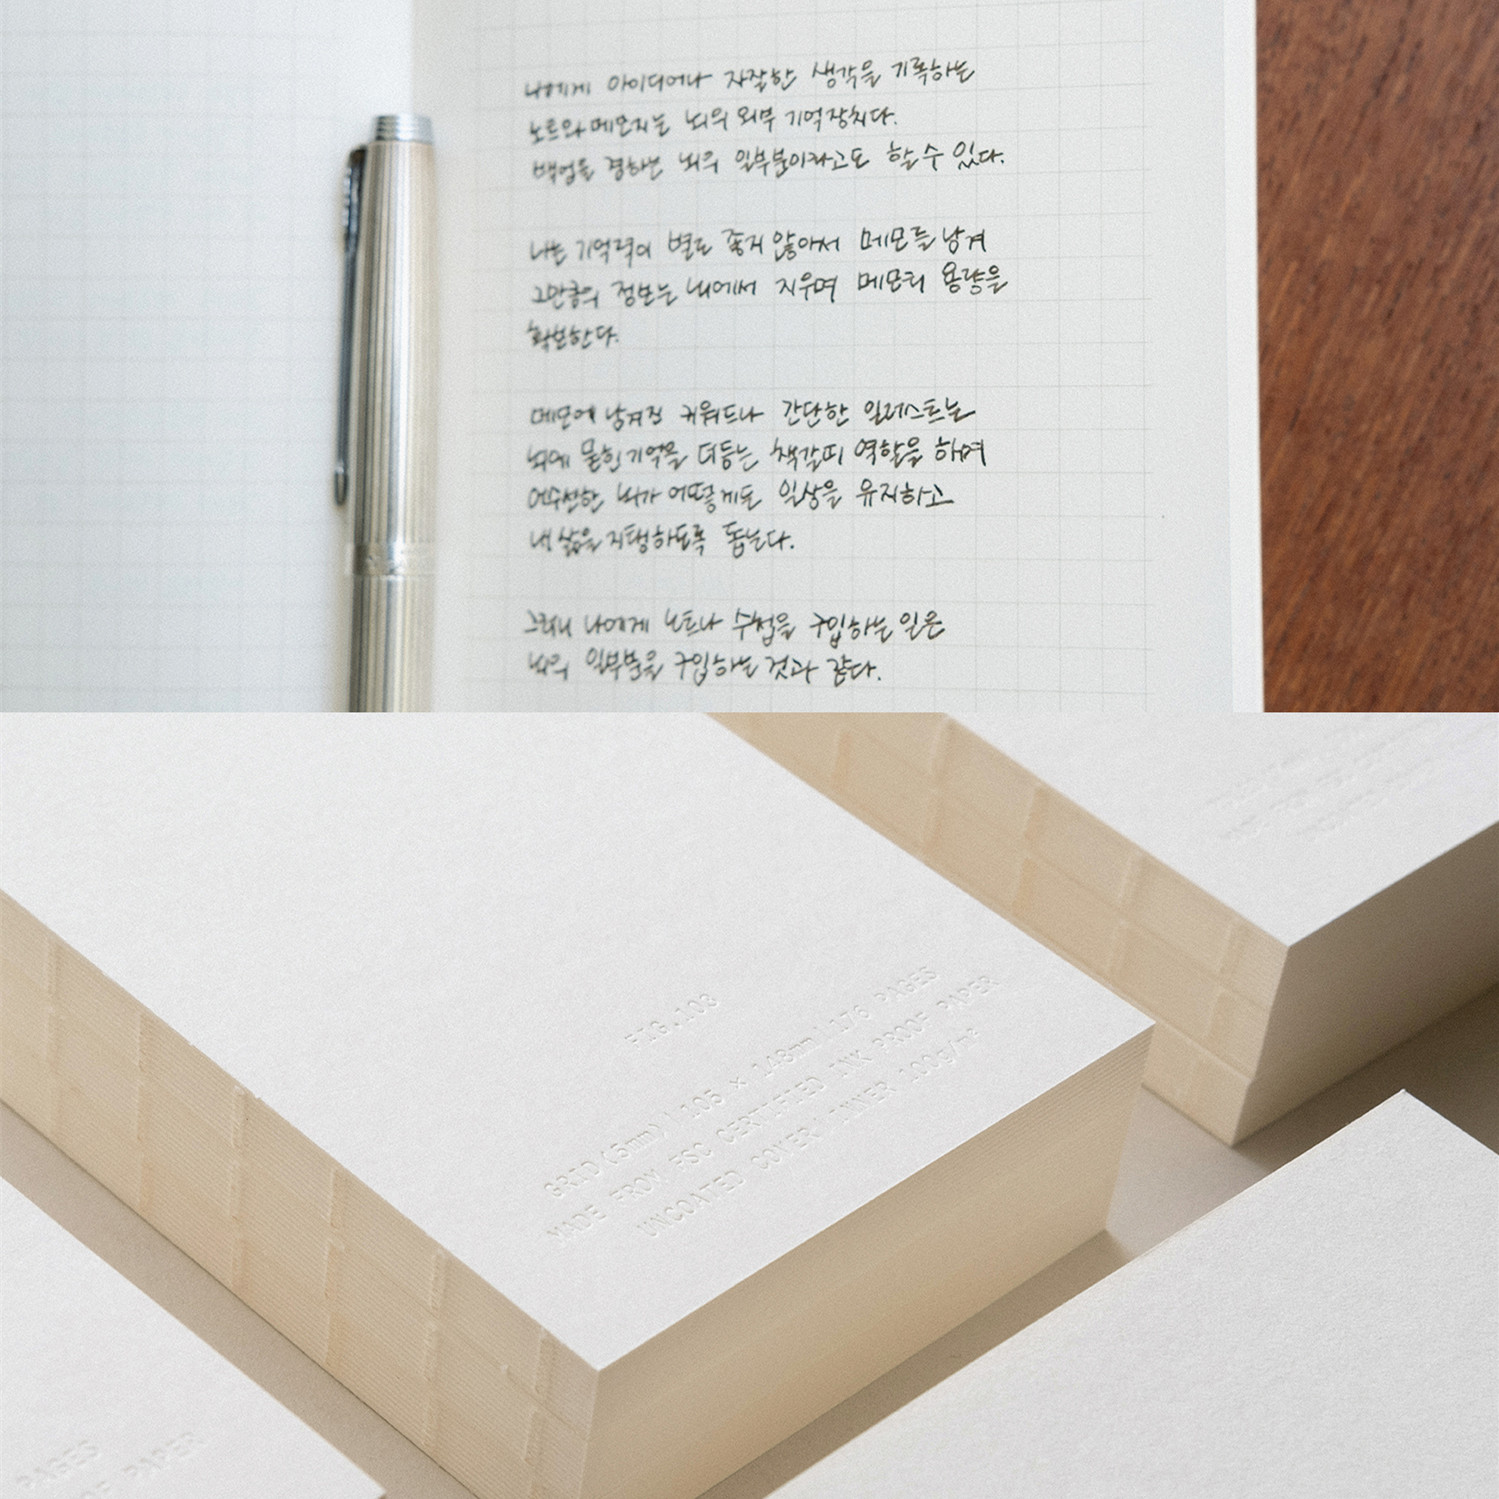 나에게 아이디어나 자잘한 생각을 기록하는
노트와 메모지는 뇌의 외부 기억장치다.
백업을 겸하는 뇌의 일부분이라고도 할 수 있다.
나는 기억력이 별로 좋지 않아서 메모를 남겨
그만큼의 정보는 뇌에서 지우며 메모리 용량을
확보한다.
메모에 남겨진 키워드나 간단한 일러스트는
뇌에 묻힌 기억을 더듬는 책갈피 역할을 하며
어수선한 뇌가 어떻게든 일상을 유지하고
내 삶을 지탱하도록 돕는다.
그러니 나에게 노트나 수첩을 구입하는 일은
뇌의 일부분을 구입하는 것과 같다.
FIG.103
GRID(5mm) | 105 × 148mm | 176 PAGES
MADE FROM FSC CERTIFIED INK PROOF PAPER
UNCOATED COVER INNER 100g/m²
PAGES
OF PAPER